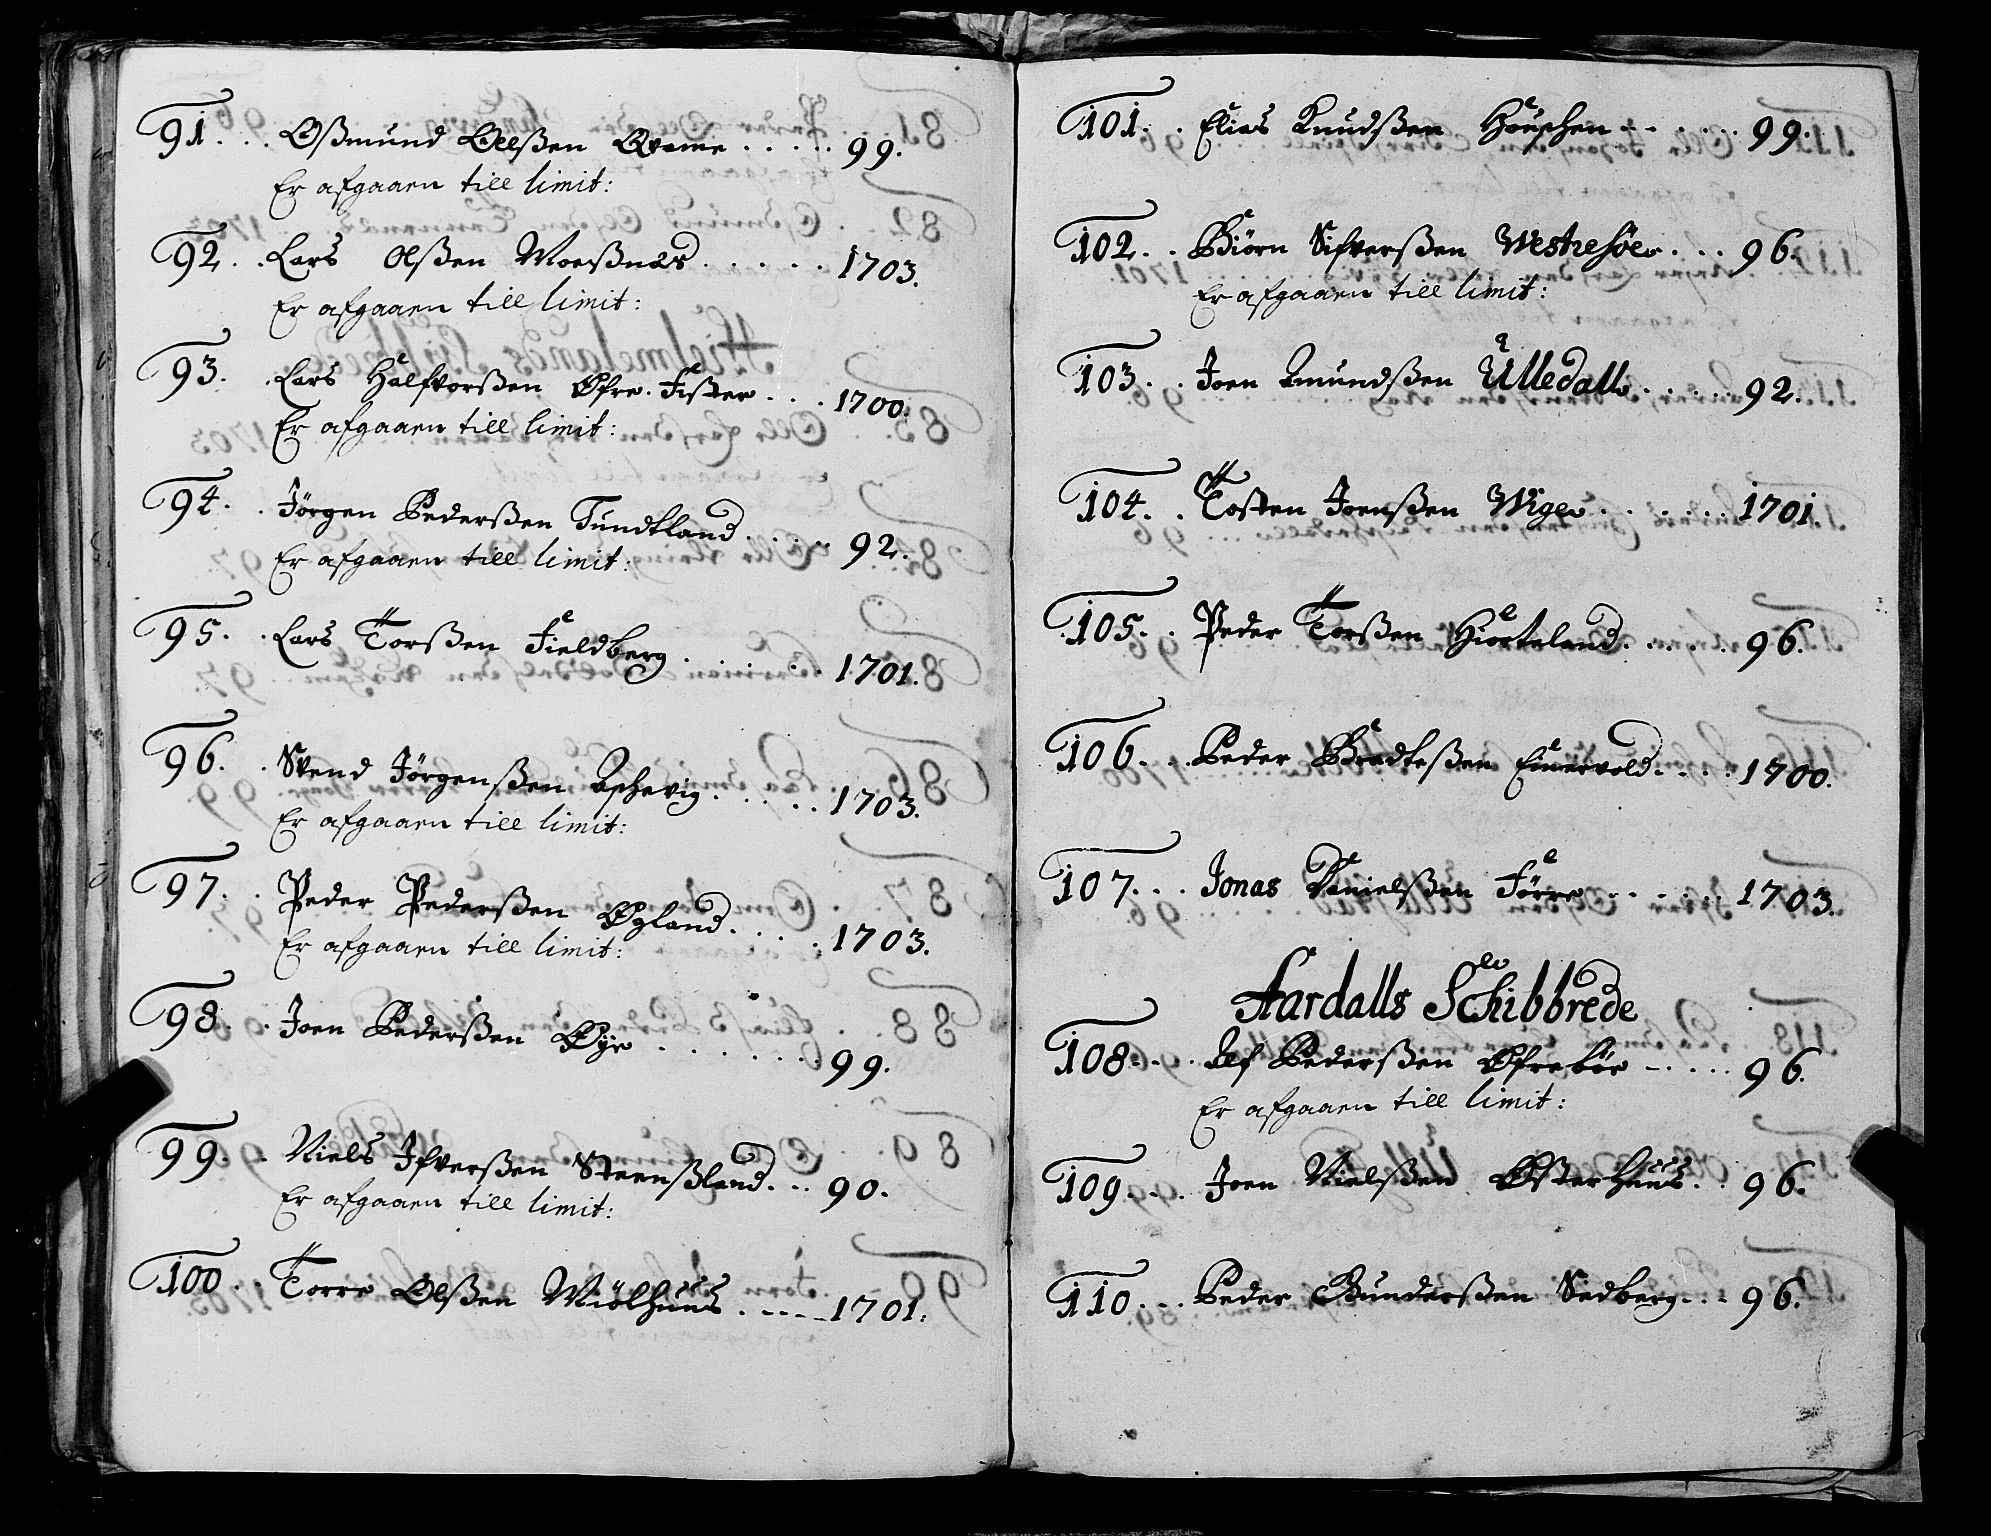 91. Oßmund Ollßen Qvame 99.
Er afgaaen till limit:
92. Lars Olßen Moeßnæs 1703.
Er afgaaen till limit:
93. Lars Halfvorßen Øfre Fister 1700.
Er afgaaen till limit:
94. Jørgen Pederßen Tundtland 92.
Er afgaaen till limit:
95. Lars Torßen Fieldberg 1701.
96. Svend Jørgenßen 1703.
Er afgaaen till limit:
97. Peder Pederßen Øgland 1703.
Er afgaaen till limit:
98. Joen Pederßen Øye 99.
99. Niels Ifverßen Steenßland 90.
Er afgaaen till limit:
100 Torre Olßen Miølhuus 1701.
101. Elias Knudßen 99.
102. Biørn Sifverßen Westresøe 96.
Er afgaaen till limit:
103. Joen Amundßen Ülledall 92.
104. Tosten Joenßen Wige 1701.
105. Peder Torßen Hiorteland 96.
106. Peder Bradteßen Eiuervold 1700.
107. Jonas Danielßen Førre 1703.
Aardalls Schibbrede
108. Alf Pederßen Øfrebøe 96.
Er afgaaen till limit:
109. Joen Nielßen Østerhuus 96.
110. Peder Gunderßen Sedberg 96.